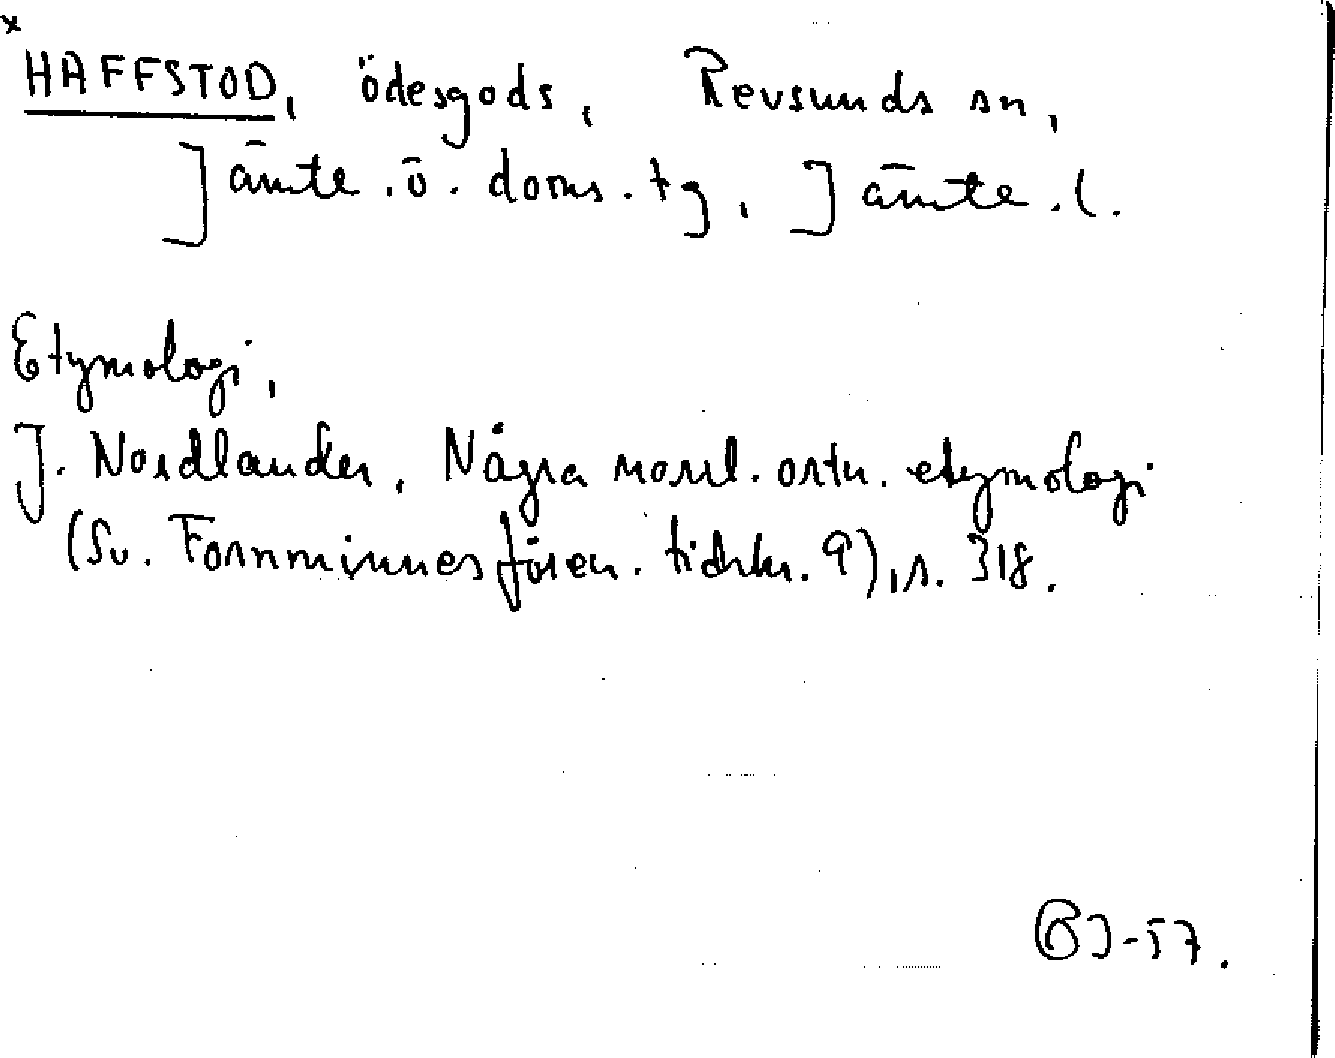 x
HAFFSTOD, ödesgods, Revsunds sn,
Jämte. ö. doms. tg, Jämte. l.
Etymologi,
J. Nordlander, Några norrl. ortn. etymologi
(Sv. Fornminnesfören. tidskr. 9), s. 318.
BJ-57.